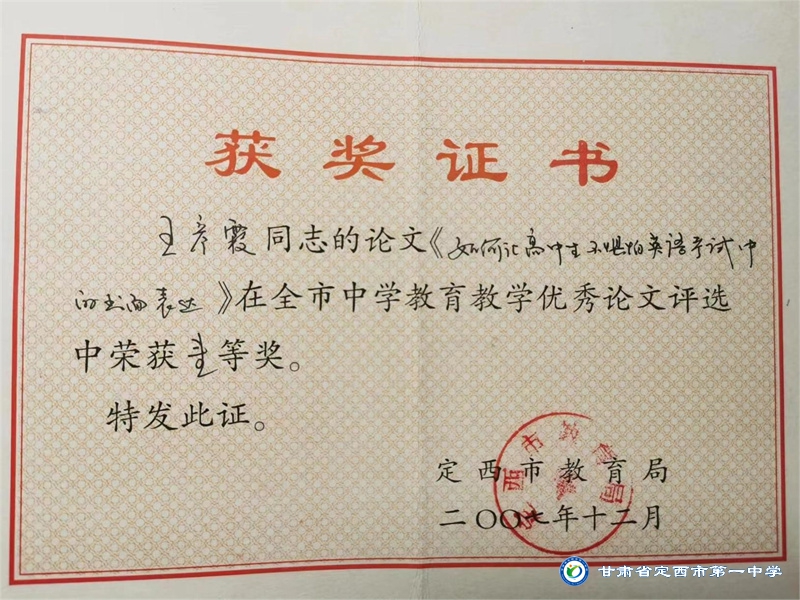 获奖证书
王彦霞同志的论文《如何让高中生不惧怕英语考试中
的书面表达》在全市中学教育教学优秀论文评选
中荣获等奖。
特发此证。
定西市教育局
二〇〇七年十二月
定西市教育局
甘肃省定西市第一中学